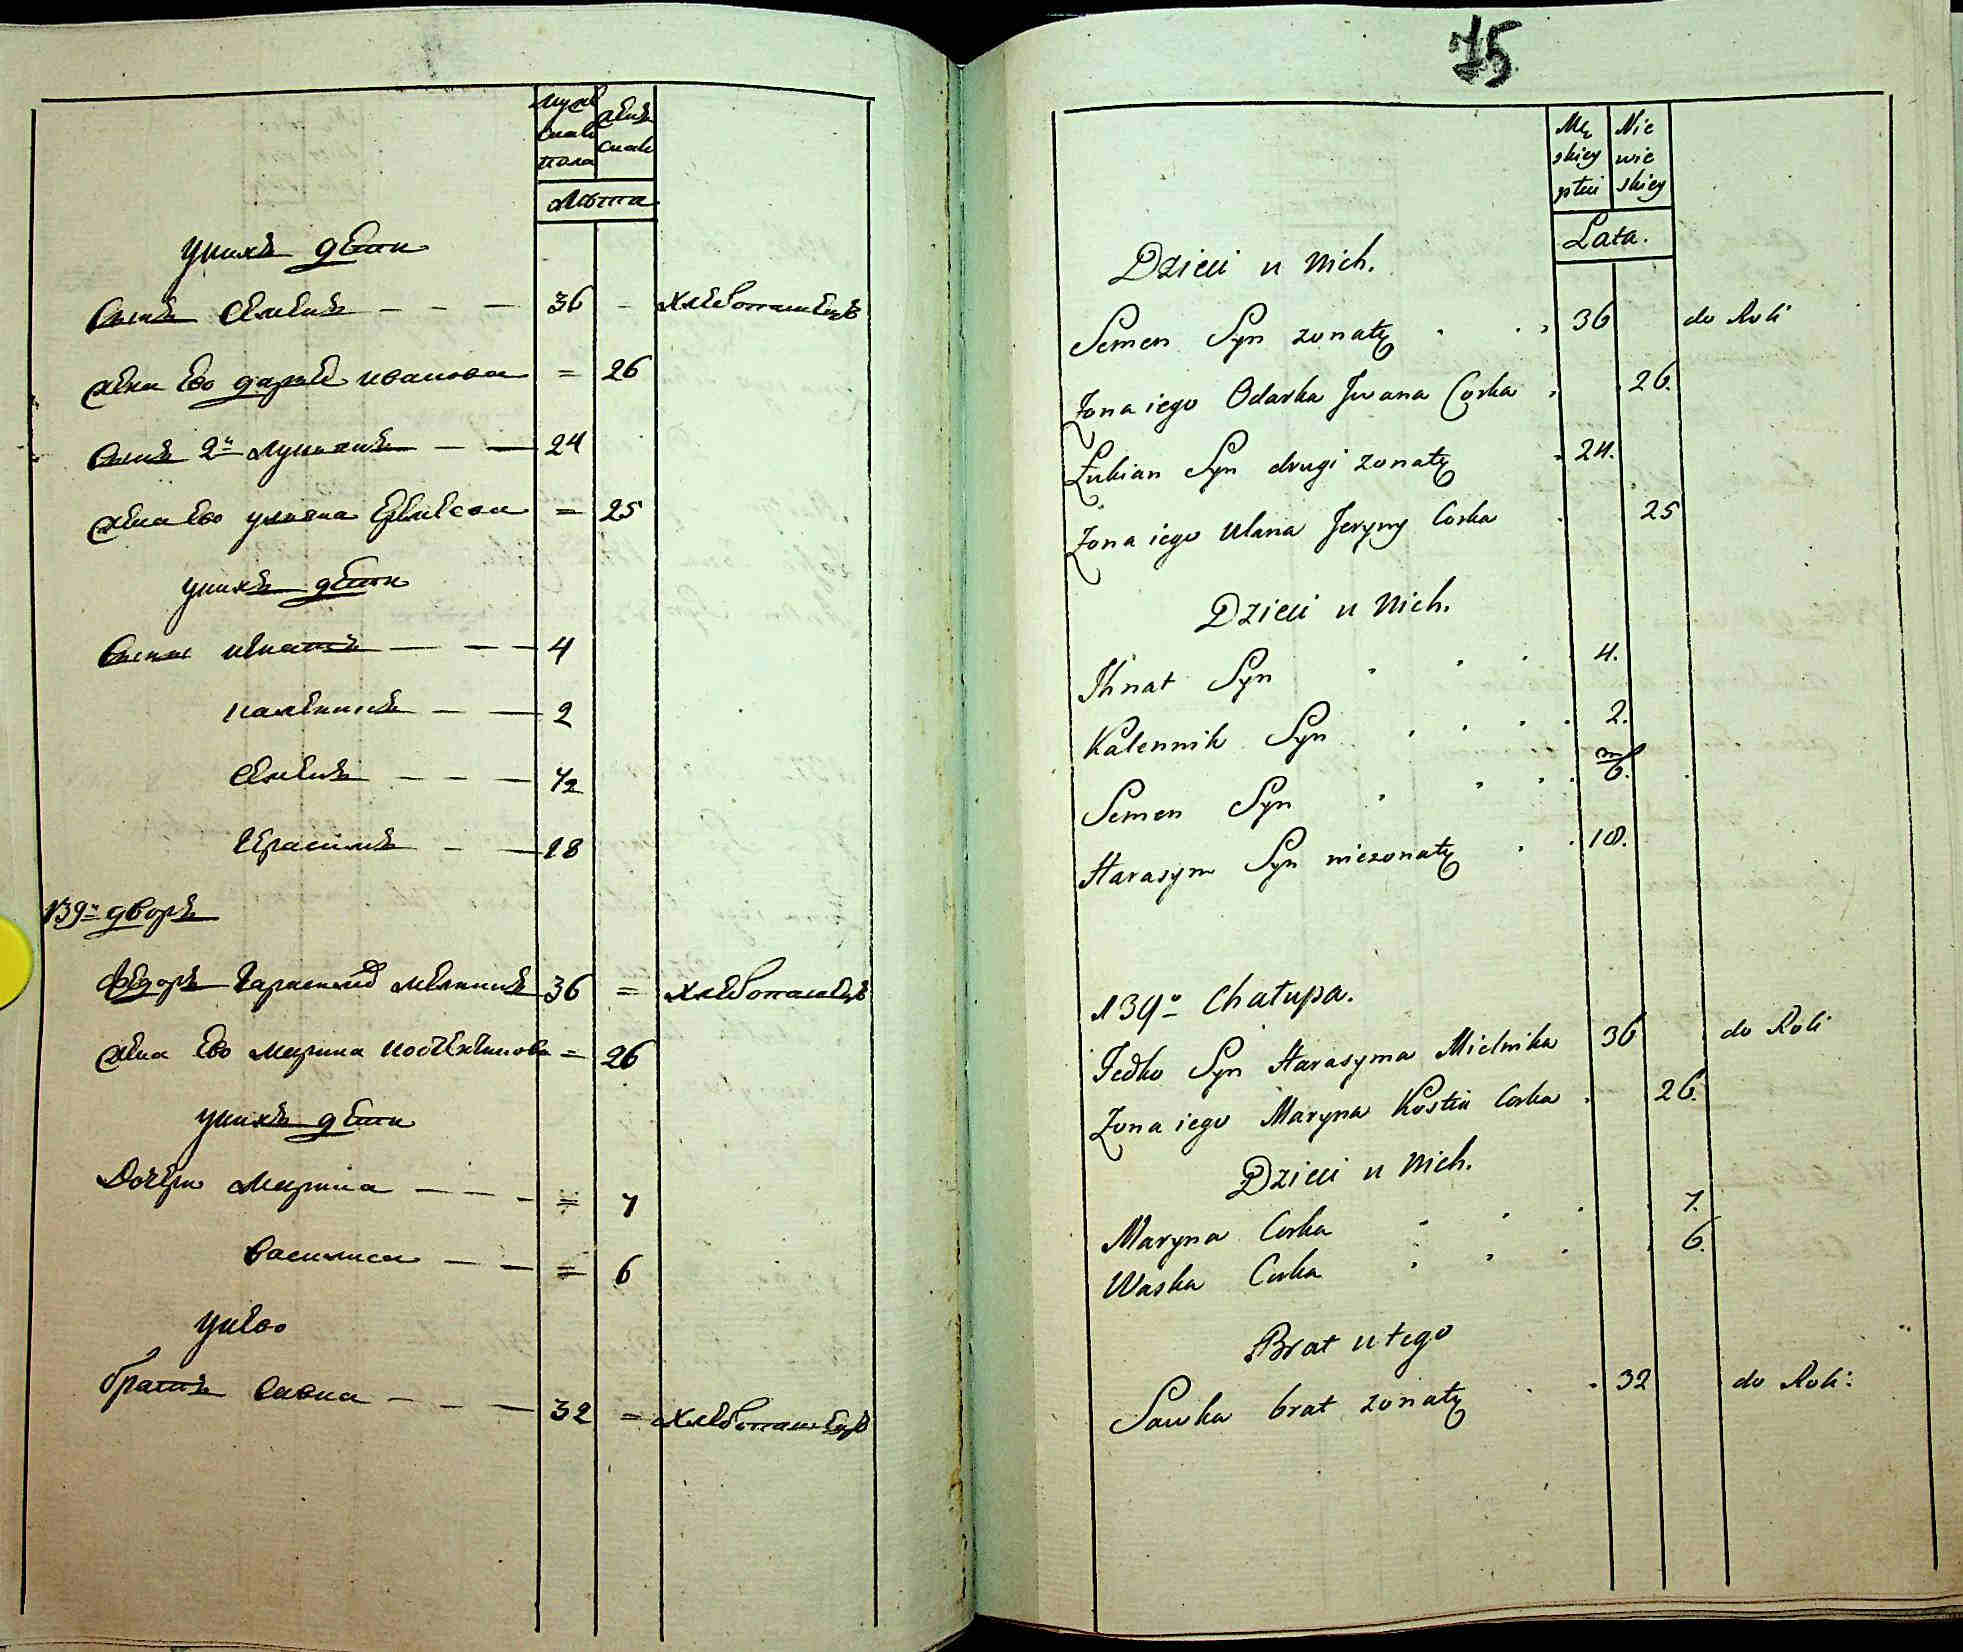 мужеска пола
женска
Лѣта
у нихъ дѣти
Сынъ Семенъ 36 Хлебопашецъ
жена ево дарья иванова = 26
Сынъ 2й лукьянъ 24
жена ево ульяна = 25
у нихъ дѣти
Сыны игнатъ 4
каленникъ 2
Семенъ 1/2
Герасимъ 18
139й дворъ
Федоръ Гарасимов мельникъ 36 = Хлебопашецъ
жена ево марина костентинова = 26
у нихъ дѣти
Дочери марина = 7
василиса = 6
у него
братъ савка 32 = Хлебопашецъ
75
Mę skiey płci
Nie wie skiey
Lata.
Dzieci u Nich.
Semen Syn zonaty 36 do Roli
Zona iego Odarka Jwana Corka 26.
Łukian Syn drugi zonaty 24.
Zona iego Ulana Jeryny Corka 25
Dzieci u Nich.
Ihnat Syn 4.
Kalennik Syn 2.
Semen Syn m/6.
Harasym Syn niezonaty 18.
139o Chałupa.
Fedko Syn Harasyma Mielnika 36 do Roli
Zona iego Maryna Kostiu Corka 26.
Dzieci u Nich.
Maryna Corka 7.
Waska Corka 6.
Brat u tego
Sawka brat zonaty 32 do Roli: